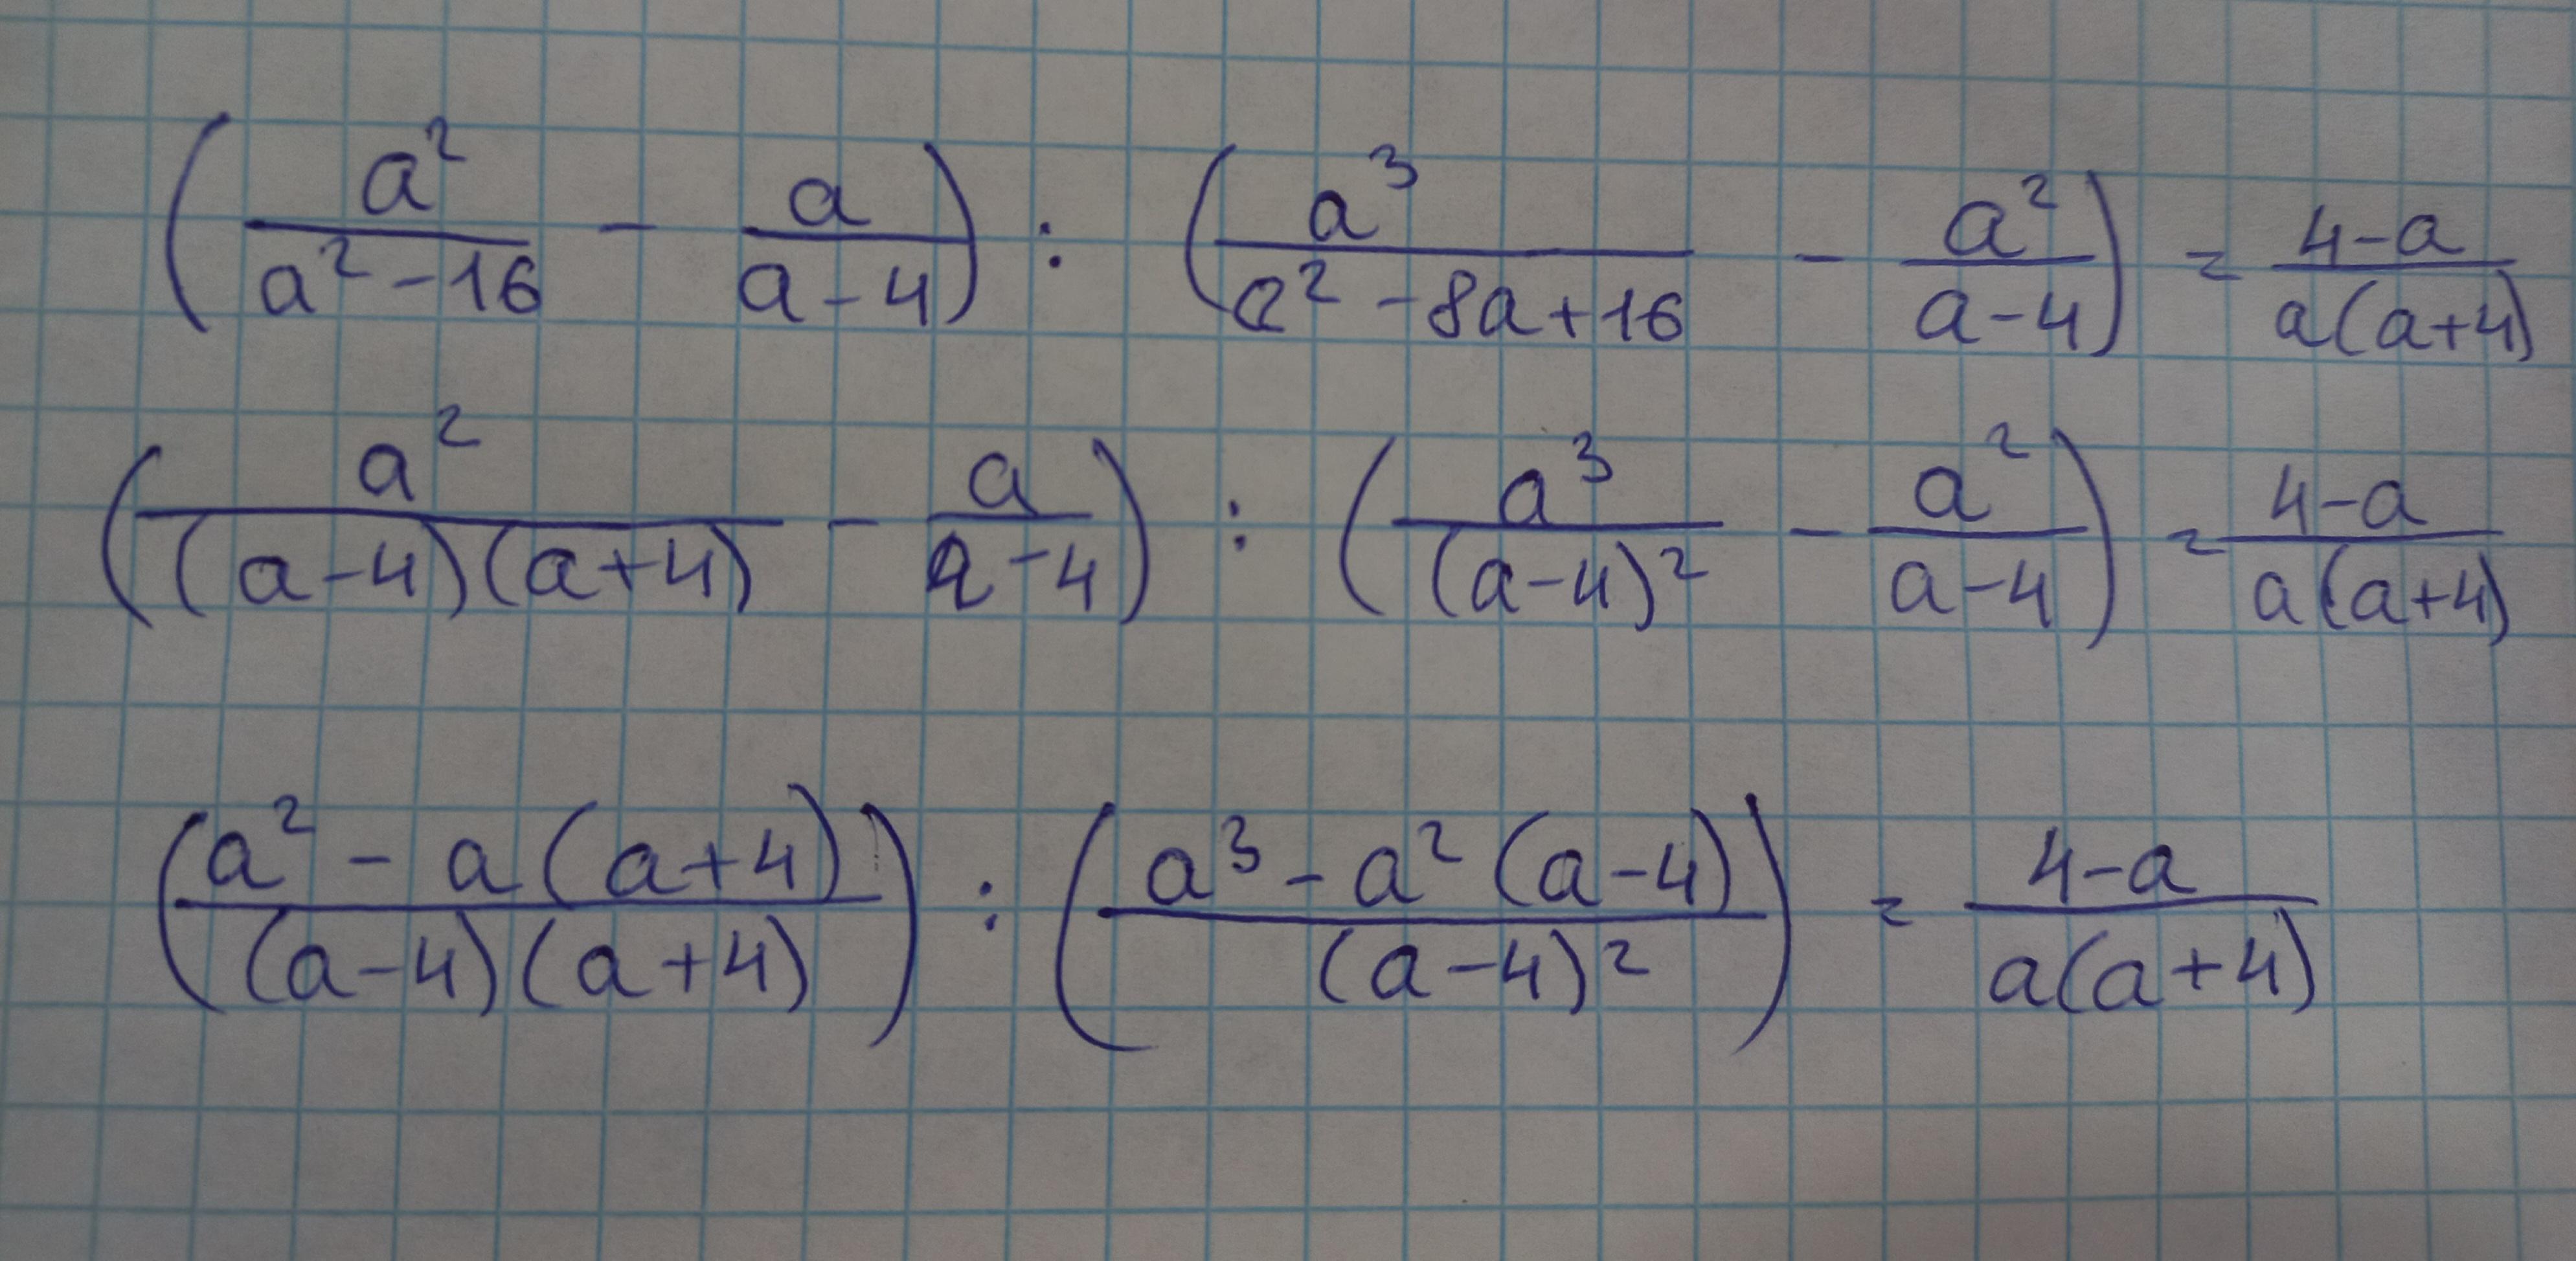 (a²/(a²-16) - a/(a-4)) : (a³/(a²-8a+16) - a²/(a-4)) = (4-a)/(a(a+4))
(a²/((a-4)(a+4)) - a/(a-4)) : (a³/(a-4)² - a²/(a-4)) = (4-a)/(a(a+4))
((a² - a(a+4))/((a-4)(a+4))) : ((a³ - a²(a-4))/(a-4)²) = (4-a)/(a(a+4))